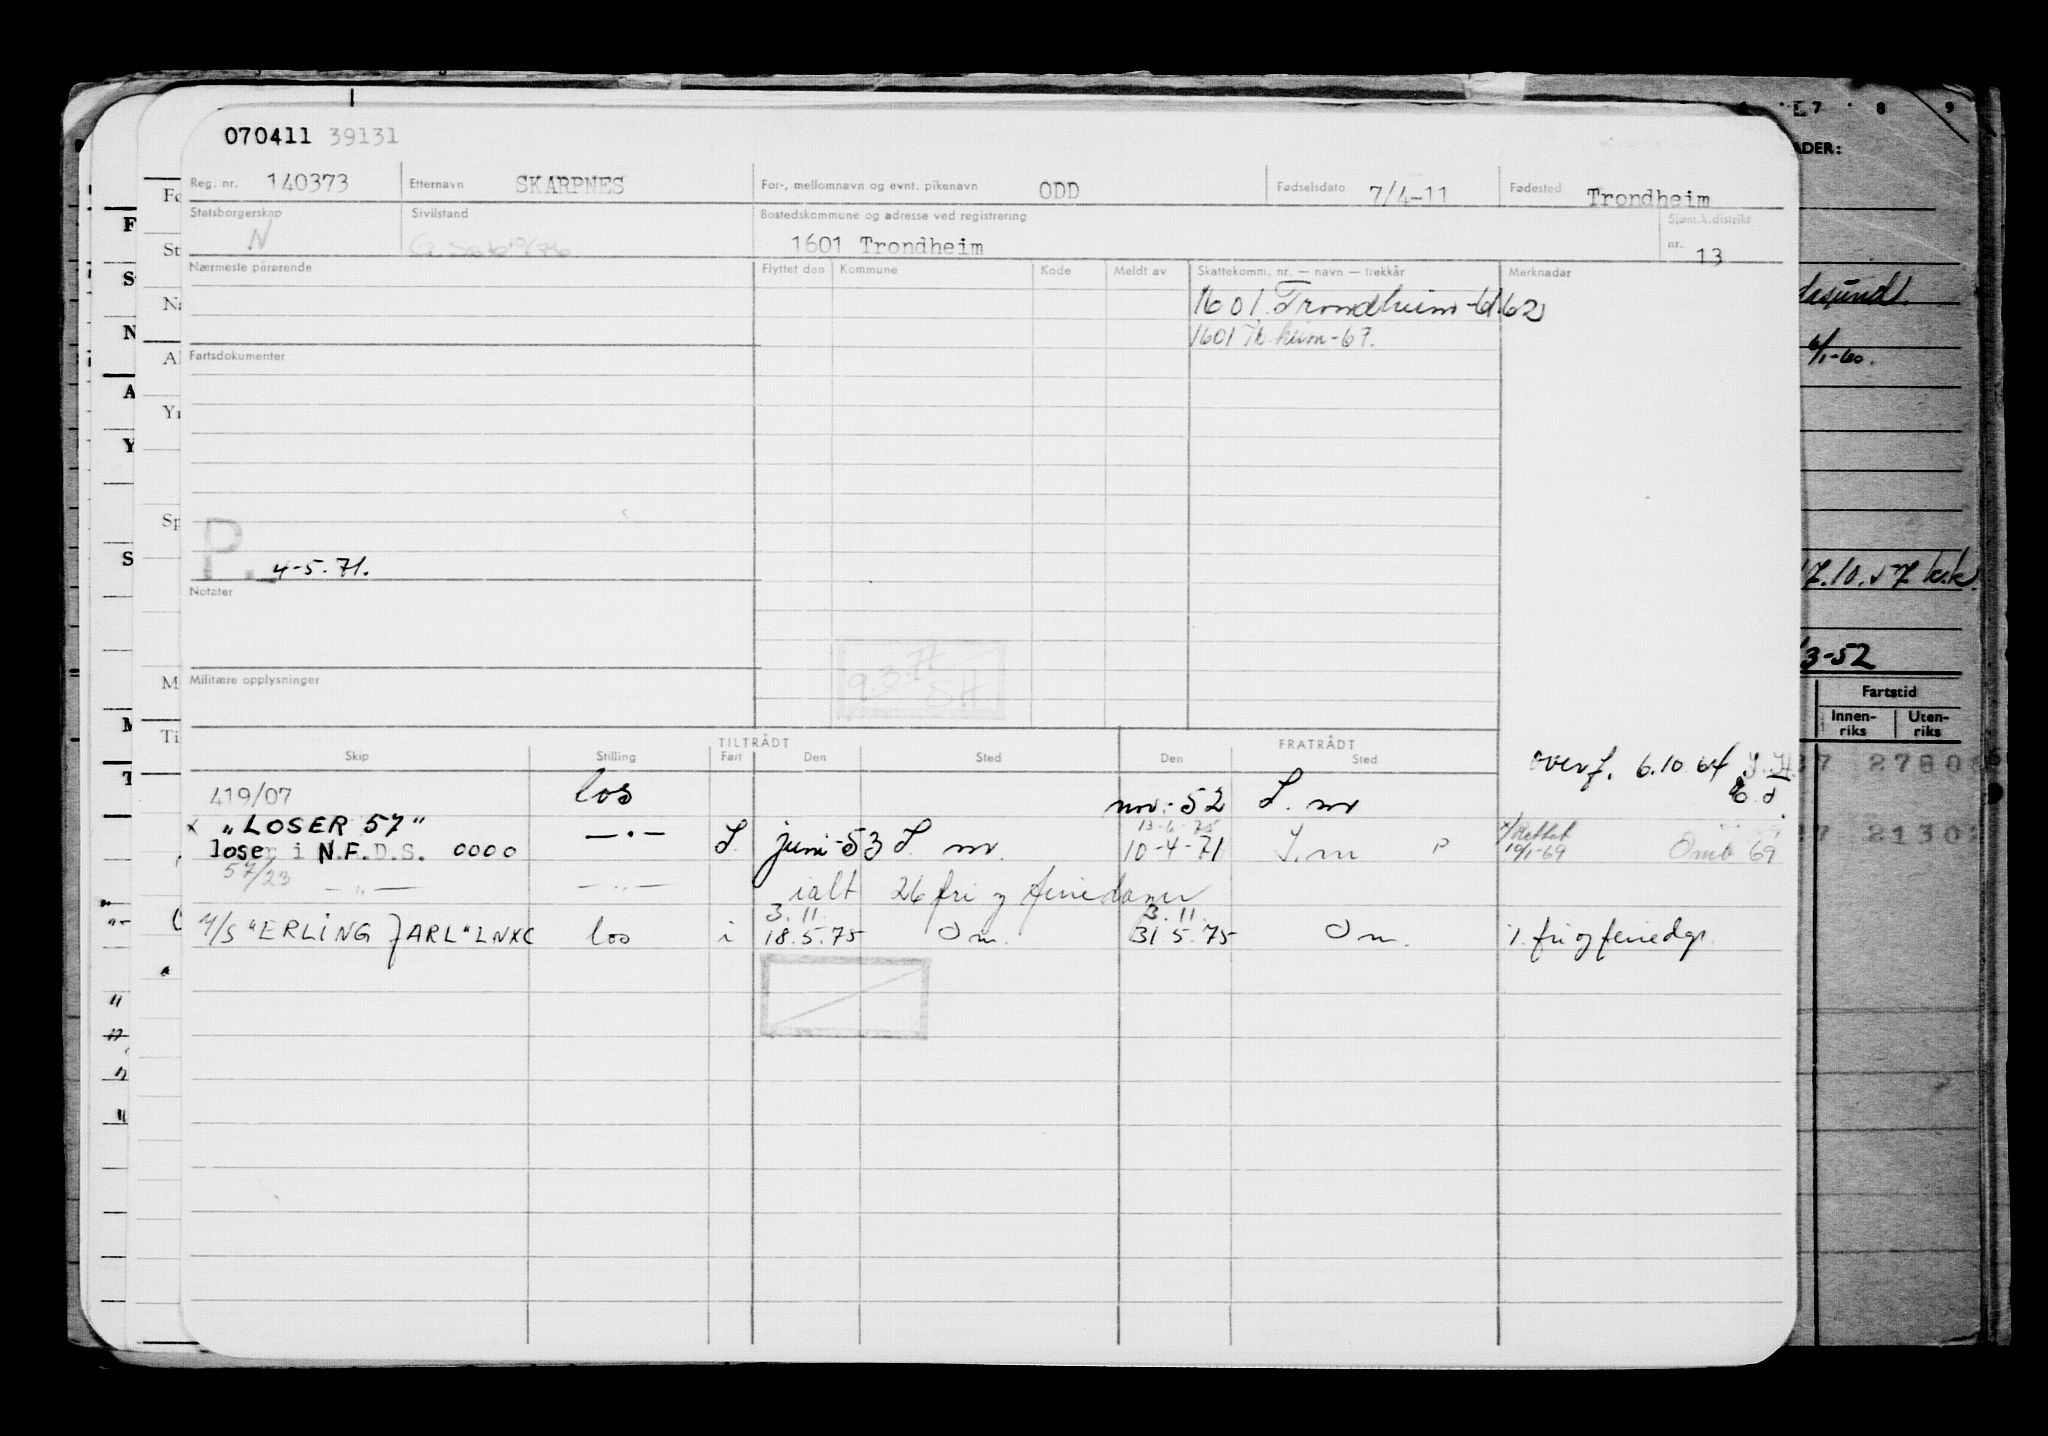 070411 39131
Reg. nr. 140373 Etternavn SKARPNES For-, mellomnavn og evnt. pikenavn ODD Fødselsdato 7/4-11 Fødested Trondheim
Statsborgerskap N Sivilstand Bostedskommune og adresse ved registrering 1601 Trondheim Sjøm.k.distrikt nr. 13
Nærmeste pårørende Flyttet den Kommune Kode Meldt av Skattekomm. nr. — navn — trekkår Merknader
1601 Trondheim-61.62
1601 Tr.heim-67.
Fartsdokumenter
P. 4-5.71.
Notater
9.3.77
SH
Militære opplysninger
TILTRÅDT FRATRÅDT
Skip Stilling Fart Den Sted Den Sted
overf. 6.10 64
419/07 los nov.-52 L. nr
x "LOSER 57" —·— 13-6-75
loser i N.F.D.S. 0000 juni-53 10-4-71 P x/Rettet 10/1-69 Omb 69
57/23 —„— —„— ialt 26 fri og feriedager
3.11 3.11.
M/S "ERLING JARL" LNXC los i 18.5.75 Om. 31.5.75 Om. 1. fri og feriedgr.
F
S
N
A
Y
S
M
T
Fo
St
Na
Al
Yr
Sp
M
Ti
7 8 9
ADER:
6/1-60.
17.10.57 k.k.
/3-52
Fartstid
Innen-riks Uten-riks